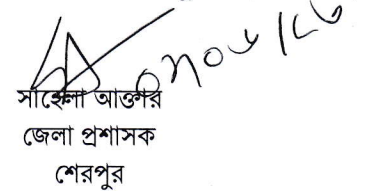 সাহেলা আক্তার
জেলা প্রশাসক
শেরপুর